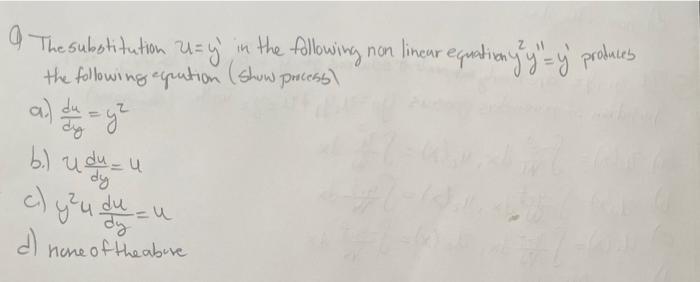 Q The substitution u=y' in the following non linear equation y²y''=y' produces
the following equation (show process)
a.) du/dy = y²
b.) u du/dy = u
c) y²u du/dy = u
d) none of the above